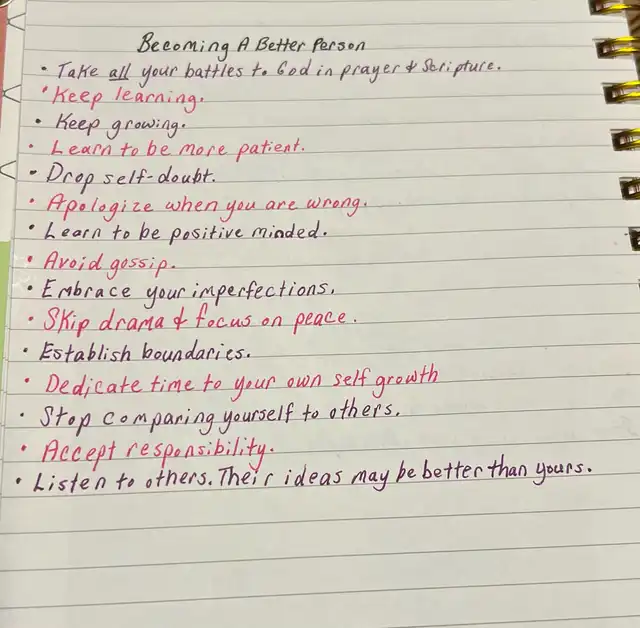 Becoming A Better Person
• Take all your battles to God in prayer & Scripture.
• Keep learning.
• Keep growing.
• Learn to be more patient.
• Drop self-doubt.
• Apologize when you are wrong.
• Learn to be positive minded.
• Avoid gossip.
• Embrace your imperfections.
• Skip drama & focus on peace.
• Establish boundaries.
• Dedicate time to your own self growth
• Stop comparing yourself to others.
• Accept responsibility.
• Listen to others. Their ideas may be better than yours.